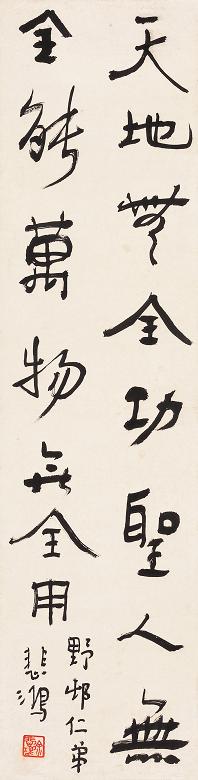 天地無全功聖人無
全能萬物无全用
野邨仁弟
悲鴻